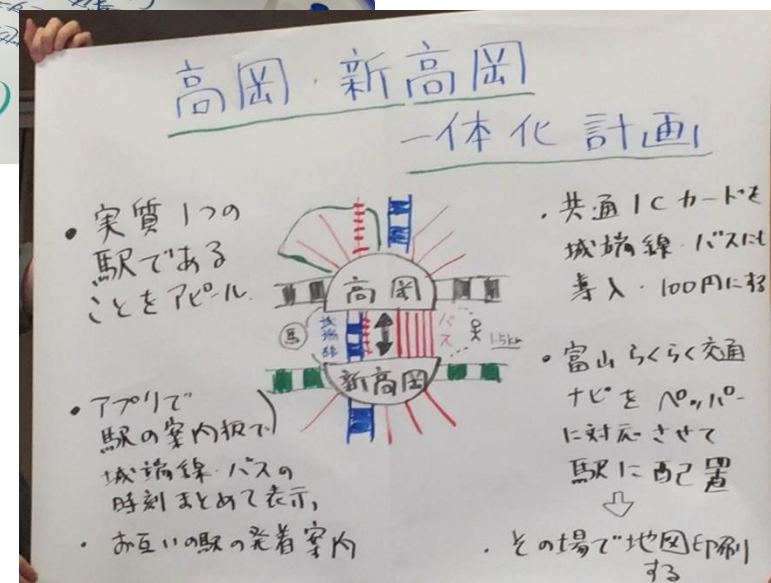 高岡・新高岡
一体化計画
・実質1つの
駅である
ことをアピール
・アプリで
駅の案内板で
城端線・バスの
時刻まとめて表示
・お互いの駅の発着案内
高岡
馬
城端線
バス
1.5km
新高岡
・共通ICカードを
城端線・バスにも
導入・100円にする
・富山らくらく交通
ナビをペッパー
に対応させて
駅に配置
⇩
・その場で地図印刷
する